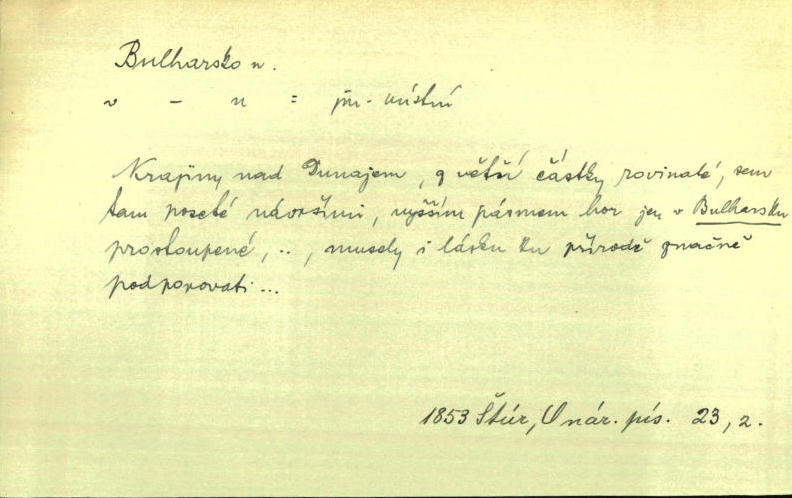 Bulharsko n.
v – n = jm. místní
Krajiny nad Dunajem, z větší částky rovinaté, sem
tam poseté návršími, vyšším pásmem hor jen v Bulharsku
prostoupené, .., musely i lásku ku přírodě značně
podporovati...
1853 Štúr, O nár. pís. 23, 2.